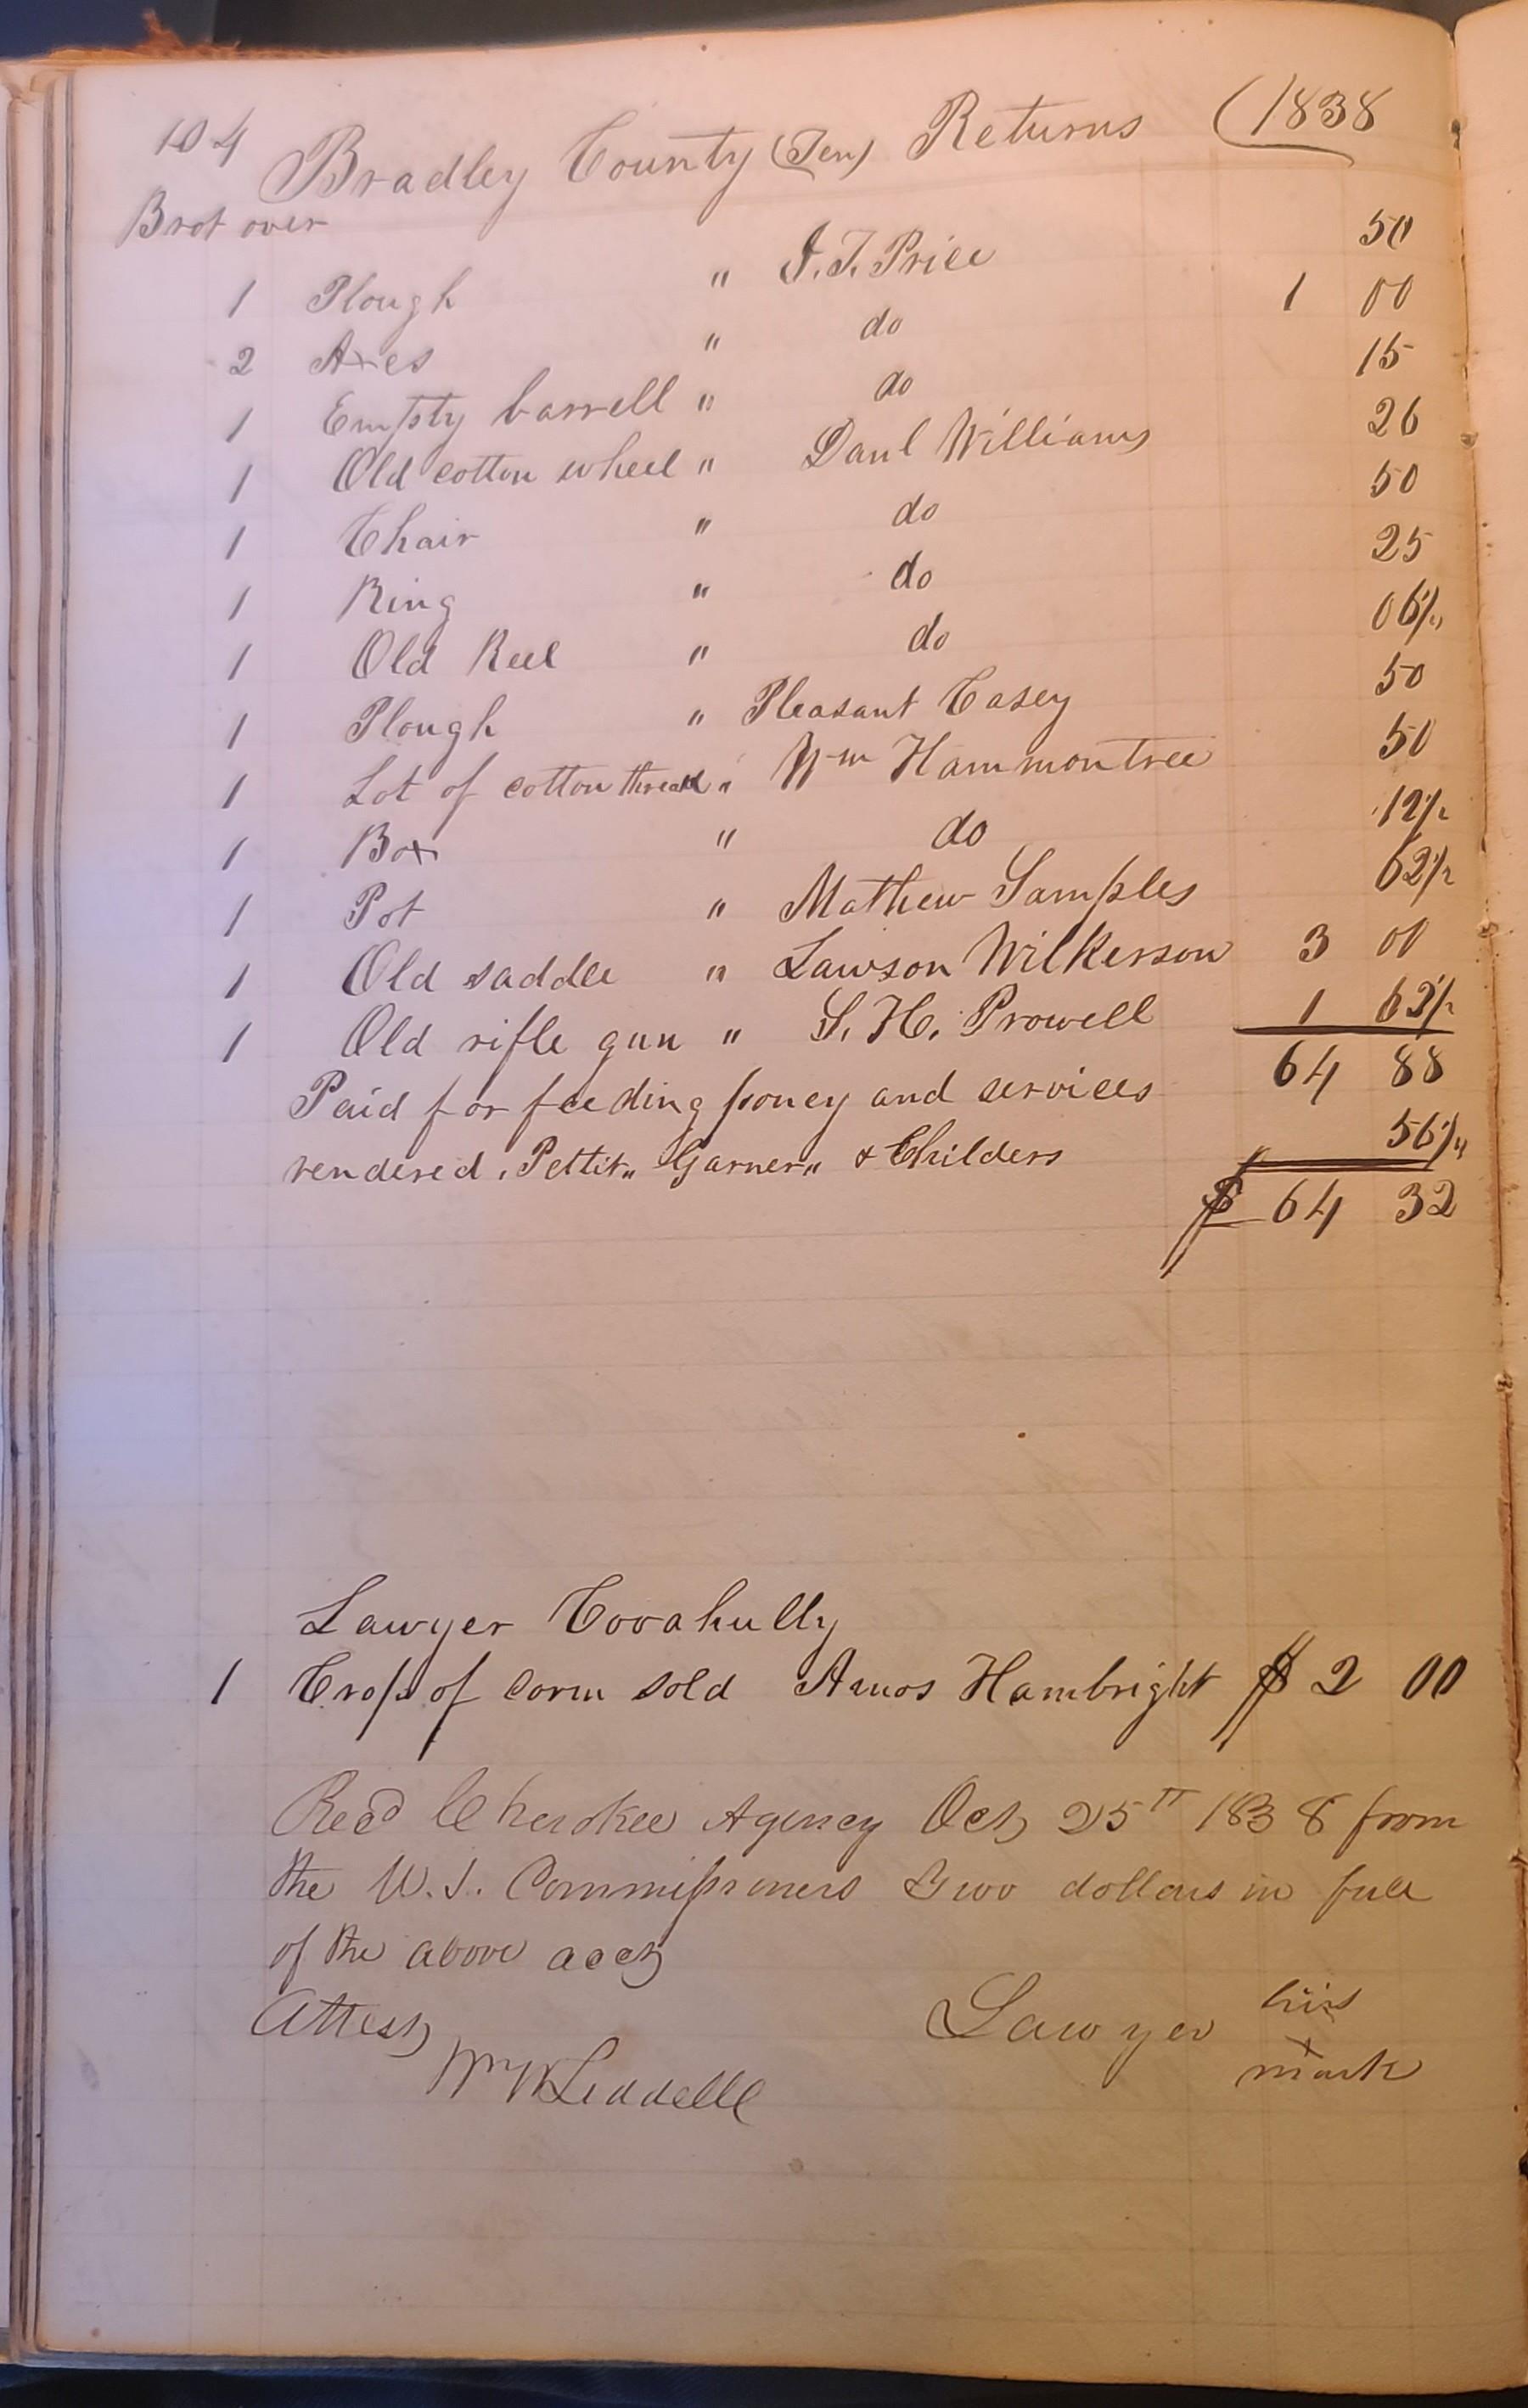 104 Bradley County (Ten) Returns (1838
Brot over
1 Plough " J. T. Price 50
2 Axes " do 1 00
1 Empty barrell " do 15
1 Old cotton wheel " Danl Williams 26
1 Chair " do 50
1 Ring " do 25
1 Old Reel " do 06¼
1 Plough " Pleasant Casey 50
1 Lot of cotton thread " Wm Hammontree 50
1 Box " do 12½
1 Pot " Mathew Samples 62½
1 Old saddle " Lawson Wilkerson 3 00
1 Old rifle gun " S. H. Prowell 1 62½
64 88
Paid for feeding poney and services
rendered, Pettit" Garner" & Childers 56¼
$ 64 32
Lawyer Coorahully
1 Crop of corn sold Amos Hambright $ 2 00
Recd Cherokee Agency Oct 25th 1838 from
the U.S. Commissioners Two dollars in full
of the above acct
Attest
Lawyer his
x
mark
Wm W Liddelle